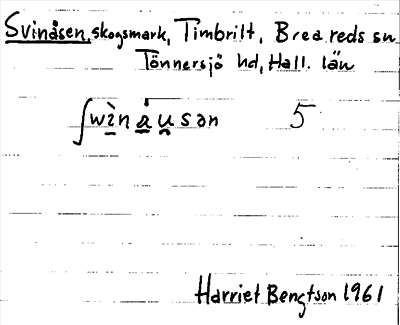 Svinåsen, skogsmark, Timbrilt, Breareds sn
Tönnersjö hd, Hall. län
ʃwìnȧusən 5
Harriet Bengtson 1961